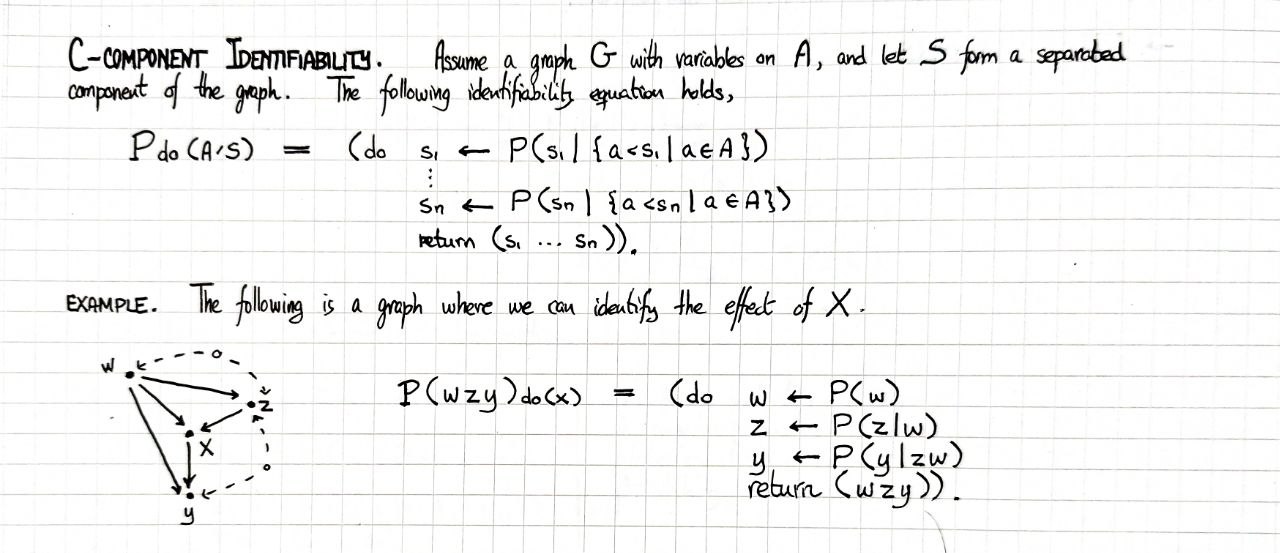 C-COMPONENT IDENTIFIABILITY. Assume a graph G with variables on A, and let S form a separated
component of the graph. The following identifiability equation holds,
P do (A\S) = (do s₁ ← P(s₁ | {a<s₁ | a∈A})
⋮
sn ← P(sn | {a<sn | a∈A})
return (s₁ ... sn)).
EXAMPLE. The following is a graph where we can identify the effect of X.
w
z
X
y
P(wzy)do(x) = (do w ← P(w)
z ← P(z|w)
y ← P(y|zw)
return (wzy)).